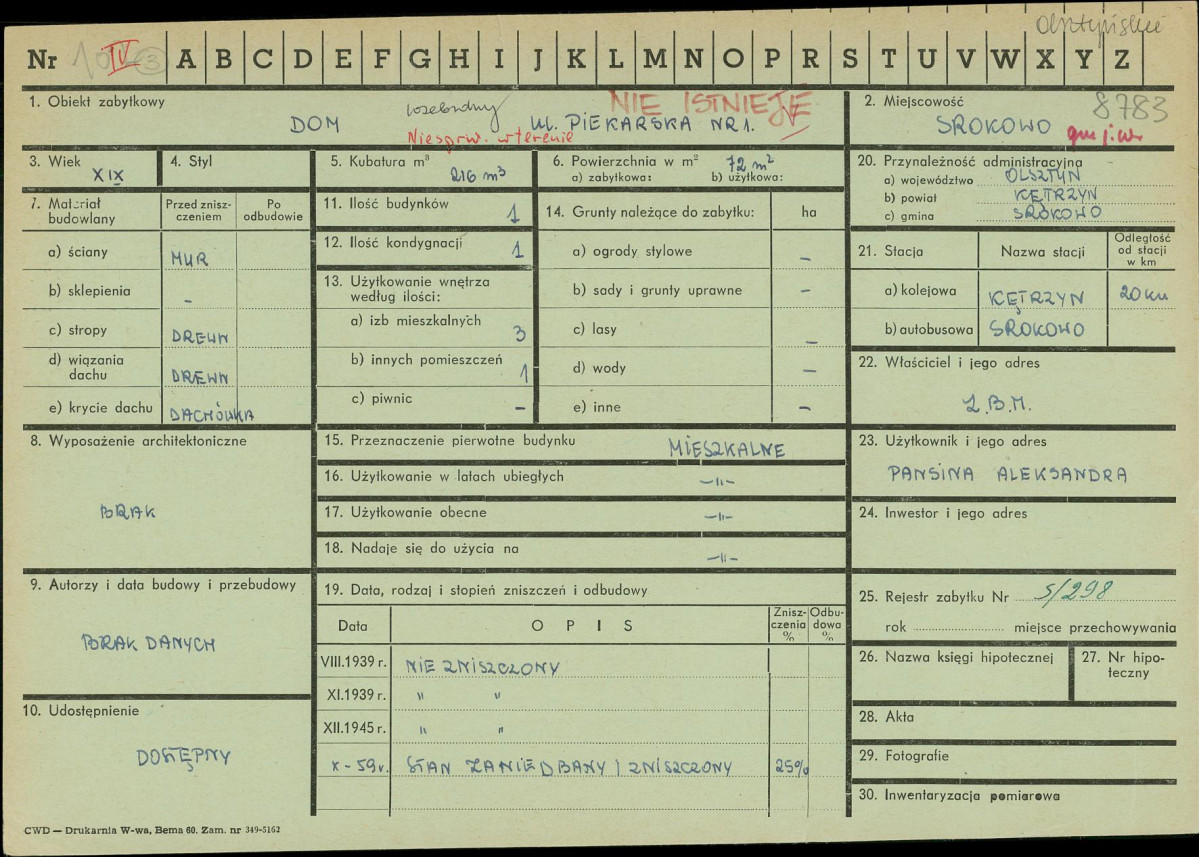 Olsztyńskie
Nr IV 3 A B C D E F G H I J K L M N O P R S T U V W X Y Z
1. Obiekt zabytkowy
rozebudny NIE ISTNIEJE
DOM ul. PIEKARSKA NR 1.
Niespraw. w terenie
2. Miejscowość 8783
SROKOWO
3. Wiek
XIX
4. Styl
5. Kubatura m³
216 m³
6. Powierzchnia w m² 72 m²
a) zabytkowa: b) użytkowa:
20. Przynależność administracyjna
a) województwo OLSZTYN
b) powiat KĘTRZYN
c) gmina SROKOWO
7. Materiał budowlany
Przed zniszczeniem
Po odbudowie
a) ściany MUR
b) sklepienia –
c) stropy DREWN
d) wiązania dachu DREWN
e) krycie dachu DACHÓWKA
11. Ilość budynków 1
12. Ilość kondygnacji 1
13. Użytkowanie wnętrza
według ilości:
a) izb mieszkalnych 3
b) innych pomieszczeń 1
c) piwnic –
14. Grunty należące do zabytku: ha
a) ogrody stylowe –
b) sady i grunty uprawne –
c) lasy –
d) wody –
e) inne –
21. Stacja Nazwa stacji Odległość od stacji w km
a) kolejowa KĘTRZYN 20 km
b) autobusowa SROKOWO
22. Właściciel i jego adres
Z.B.M.
8. Wyposażenie architektoniczne
BRAK
15. Przeznaczenie pierwotne budynku MIESZKALNE
16. Użytkowanie w latach ubiegłych –„–
17. Użytkowanie obecne –„–
18. Nadaje się do użycia na –„–
23. Użytkownik i jego adres
PANSINA ALEKSANDRA
24. Inwestor i jego adres
9. Autorzy i data budowy i przebudowy
BRAK DANYCH
10. Udostępnienie
DOSTĘPNY
19. Data, rodzaj i stopień zniszczeń i odbudowy
Data OPIS Zniszczenia % Odbudowa %
VIII.1939 r. NIE ZNISZCZONY
XI.1939 r. " "
XII.1945 r. " "
X-59 r. STAN ZANIEDBANY I ZNISZCZONY 25%
25. Rejestr zabytku Nr 5/298
rok miejsce przechowywania
26. Nazwa księgi hipotecznej
27. Nr hipoteczny
28. Akta
29. Fotografie
30. Inwentaryzacja pomiarowa
CWD — Drukarnia W-wa, Bema 60. Zam. nr 349-5162